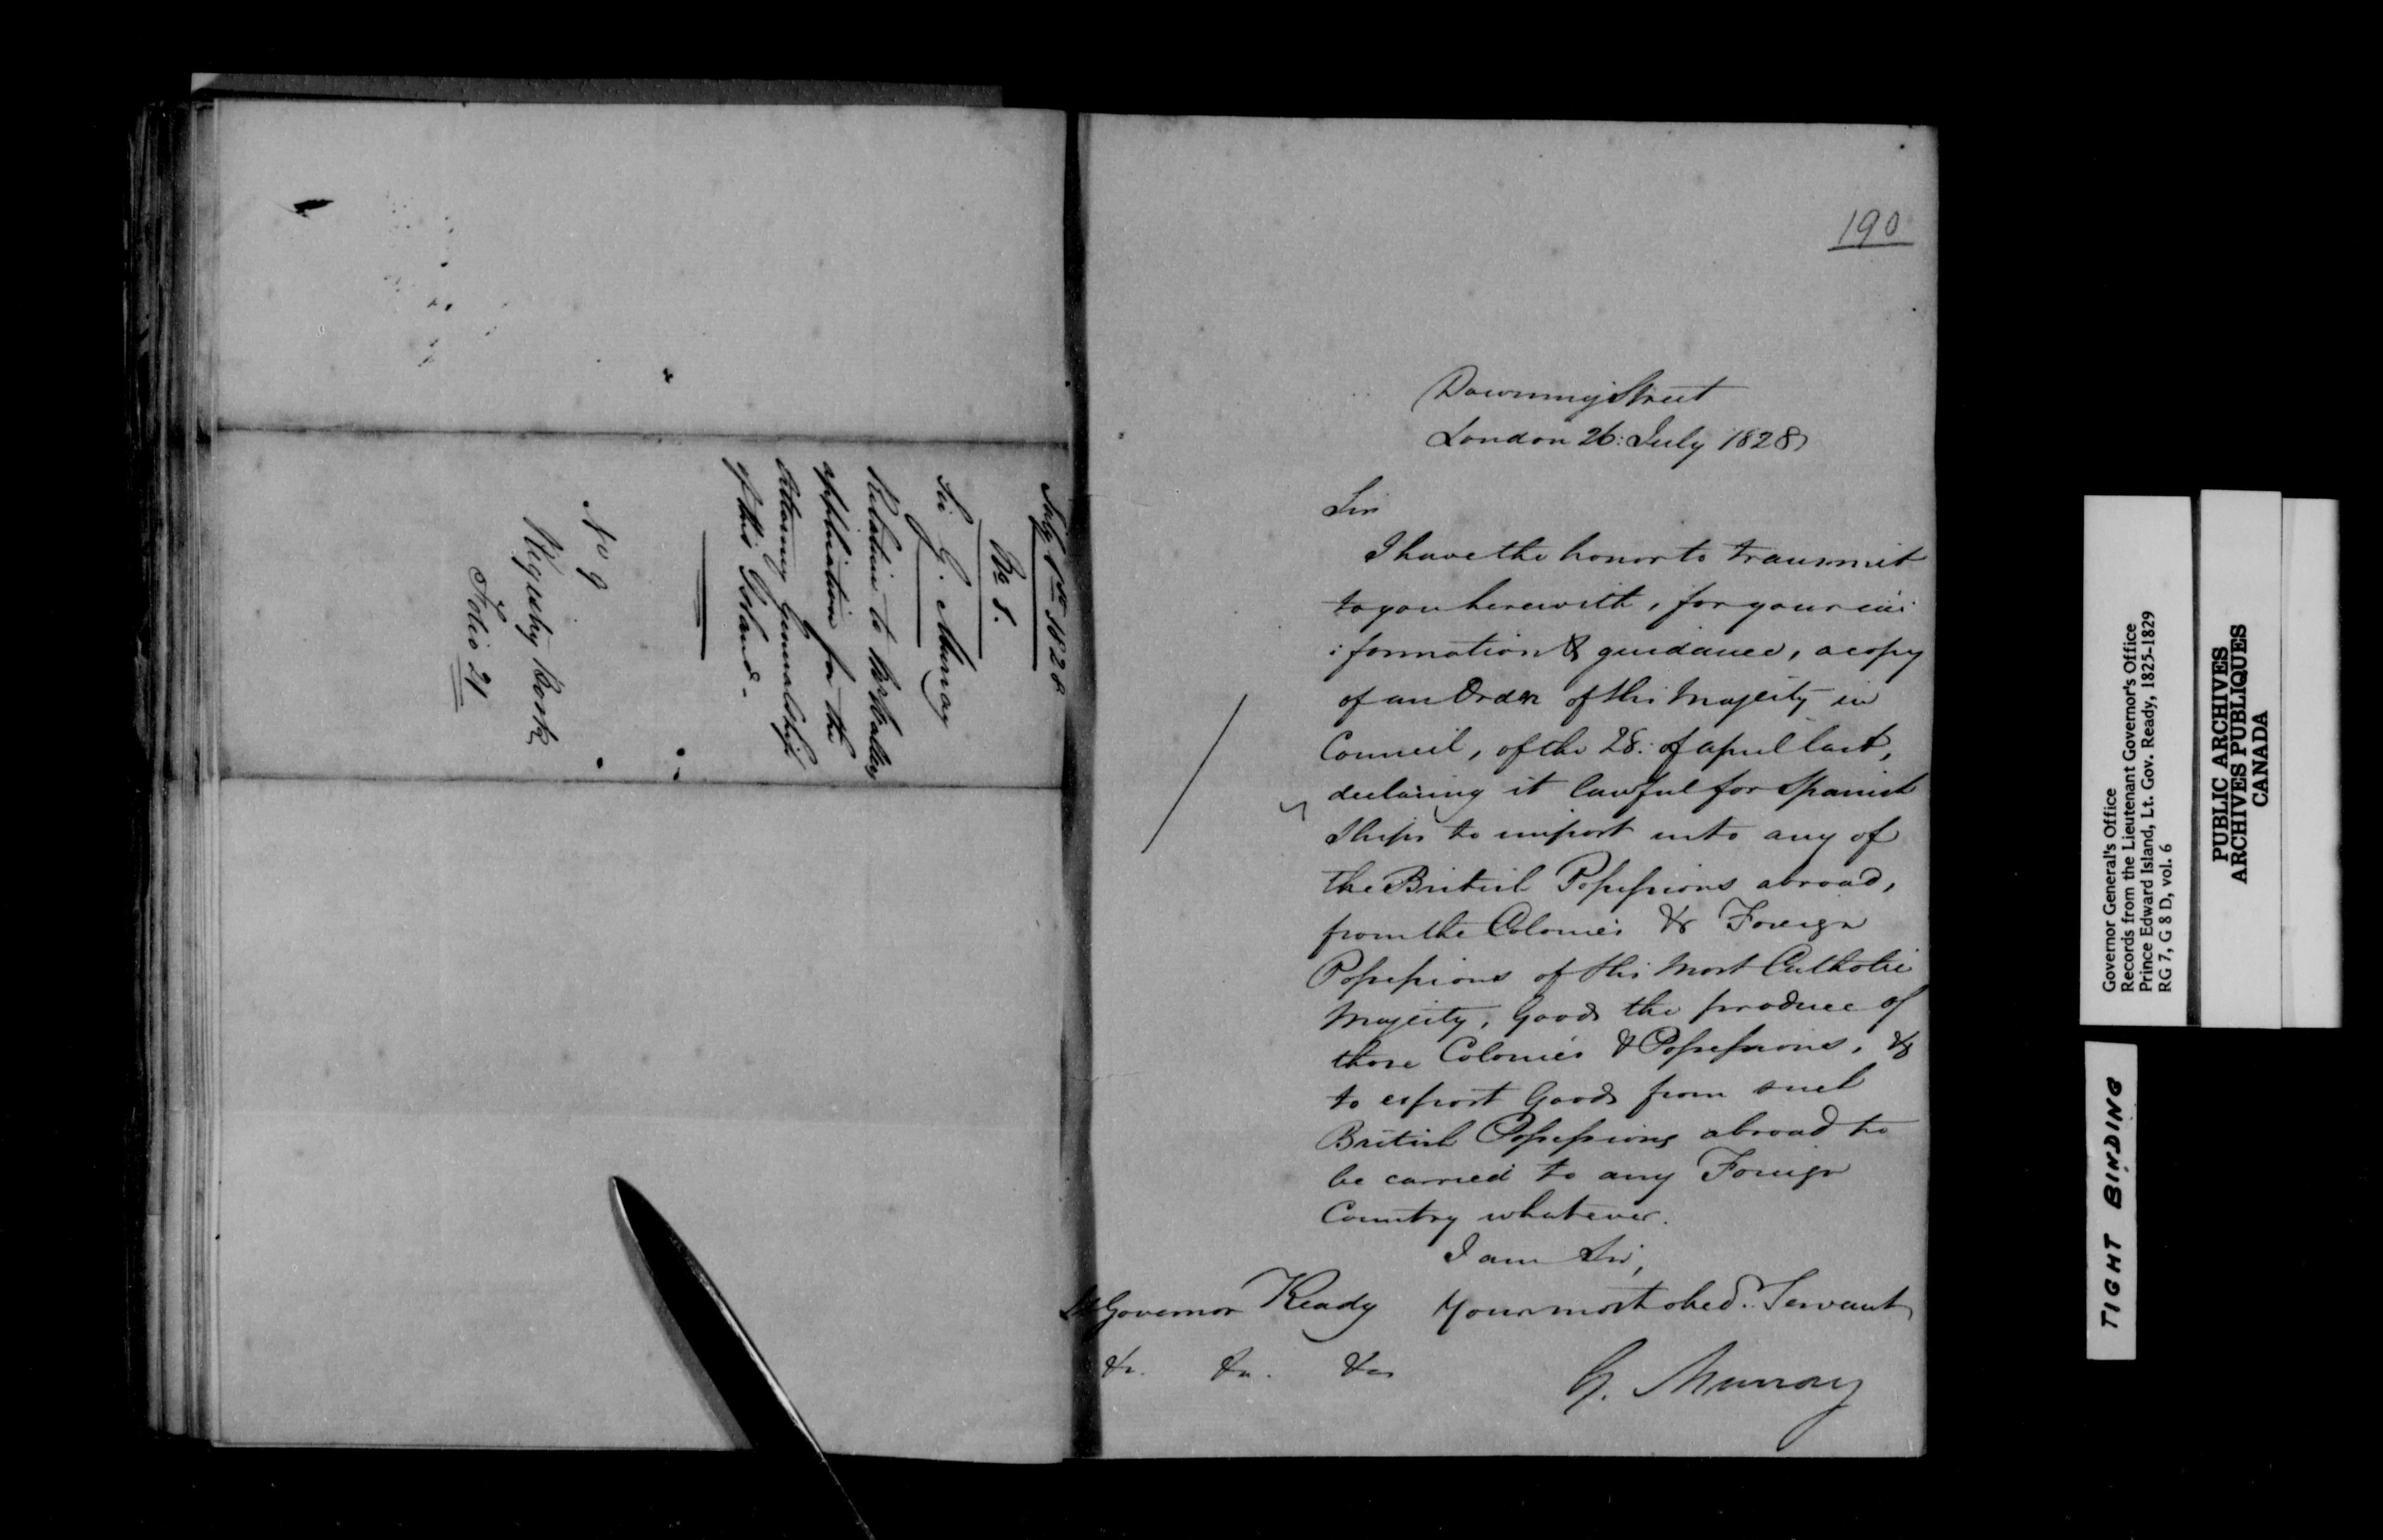 July 1st 1828
No 8.
Sir G. Murray
Relative to Mr
application for the
Attorney Generalship
of this Island.-
No 9
Registry Book
Folio 21
190
Downing Street
London 26: July 1828
Sir
I have the honor to transmit
to you herewith, for your in:
:formation & guidance, a copy
of an Order of His Majesty in
Council, of the 28: of april last,
declaring it lawful for Spanish
Ships to import into any of
the British Possessions abroad,
from the Colonies & Foreign
Possessions of His Most Catholic
Majesty, Goods the produce of
those Colonies & Possessions, &
to export Goods from such
British Possessions abroad to
be carried to any Foreign
Country whatever.
I am Sir,
Lt Governor Ready Your most obed.. Servant
&c. &c. &c
G. Murray
Governor General's Office
Records from the Lieutenant Governor's Office
Prince Edward Island, Lt. Gov. Ready, 1825-1829
RG 7, G 8 D, vol. 6
PUBLIC ARCHIVES
ARCHIVES PUBLIQUES
CANADA
TIGHT BINDING